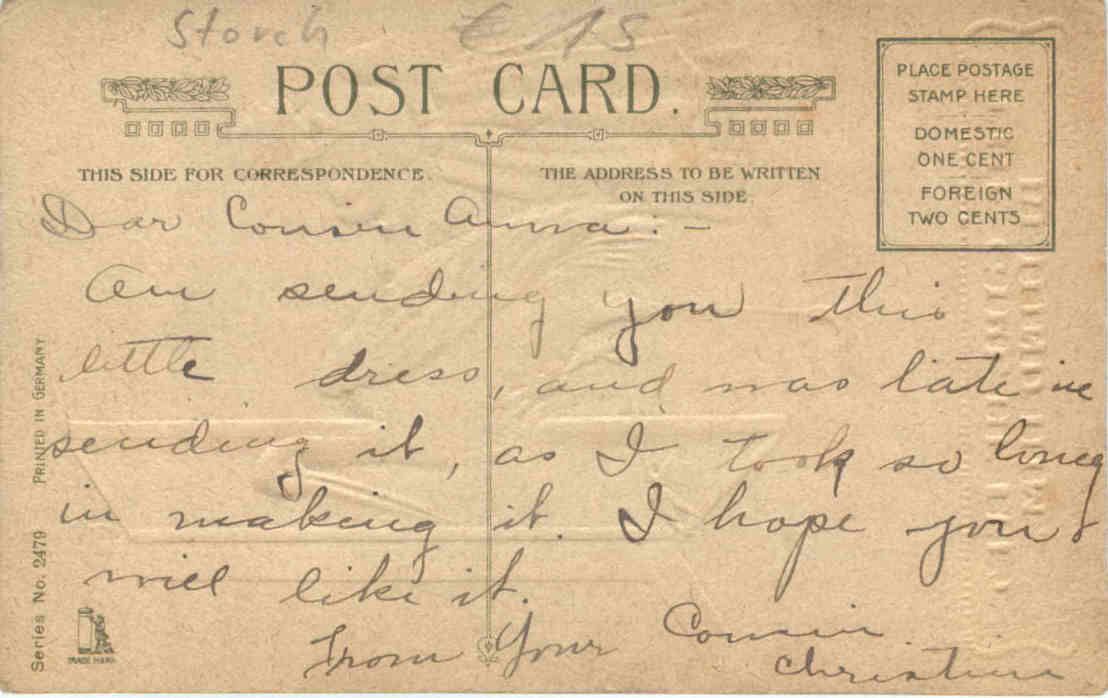 Storch € 15
POST CARD.
PLACE POSTAGE
STAMP HERE
DOMESTIC
ONE CENT
FOREIGN
TWO CENTS
THIS SIDE FOR CORRESPONDENCE.
THE ADDRESS TO BE WRITTEN
ON THIS SIDE.
Dear Cousin Anna:-
Am sending you this
little dress, and was late in
sending it, as I took so long
in making it. I hope you
will like it.
From Your Cousin
Christina
Series No. 2479 PRINTED IN GERMANY
TRADE MARK